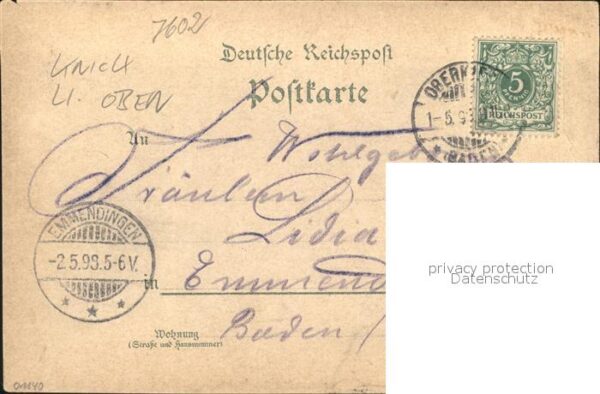 7602
KNICK
LI. OBEN
Deutsche Reichspost
Postkarte
5
REICHSPOST
1-5.9
(BADEN)
An
Wohlgeb
Fräulein
Lidia
EMMENDINGEN
-2.5.98.5-6V.
in
Emmend
Baden
Wohnung
(Straße und Hausnummer)
privacy protection
Datenschutz